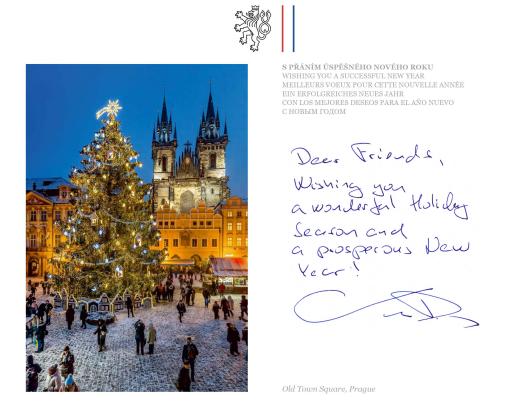 S PŘÁNÍM ÚSPĚŠNÉHO NOVÉHO ROKU
WISHING YOU A SUCCESSFUL NEW YEAR
MEILLEURS VOEUX POUR CETTE NOUVELLE ANNÉE
EIN ERFOLGREICHES NEUES JAHR
CON LOS MEJORES DESEOS PARA EL AÑO NUEVO
С НОВЫМ ГОДОМ
Dear Friends,
Wishing you
a wonderful Holiday
Season and
a prosperous New
Year!
Old Town Square, Prague